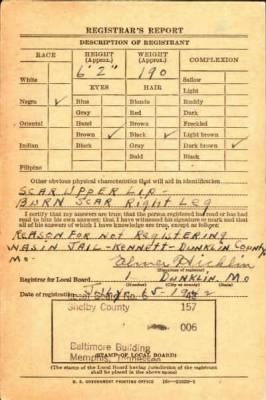 REGISTRAR'S REPORT
DESCRIPTION OF REGISTRANT
RACE HEIGHT (Approx.) WEIGHT (Approx.) COMPLEXION
6' 2" 190
White EYES HAIR Sallow
Light
Negro ✓ Blue Blonde Ruddy
Gray Red Dark
Oriental Hazel Brown Freckled
Brown ✓ Black ✓ Light brown
Indian Black Gray Dark brown ✓
Bald Black
Filipino
Other obvious physical characteristics that will aid in identification
SCAR UPPER LIP-
BURN SCAR Right Leg
I certify that my answers are true; that the person registered has read or has had
read to him his own answers; that I have witnessed his signature or mark and that
all of his answers of which I have knowledge are true, except as follows:
REASON FOR NOT REGISTERING
WAS IN JAIL-KENNETT-DUNKLIN COUNTY
MO-
Elmer Hicklin
(Signature of registrar)
Registrar for Local Board 1 DUNKLIN, MO
(Number) (City or county) (State)
Date of registration July 1942
Shelby County 157
006
Baltimore Building
Memphis, Tennessee
(STAMP OF LOCAL BOARD)
(The stamp of the Local Board having jurisdiction of the registrant
shall be placed in the above space)
U. S. GOVERNMENT PRINTING OFFICE